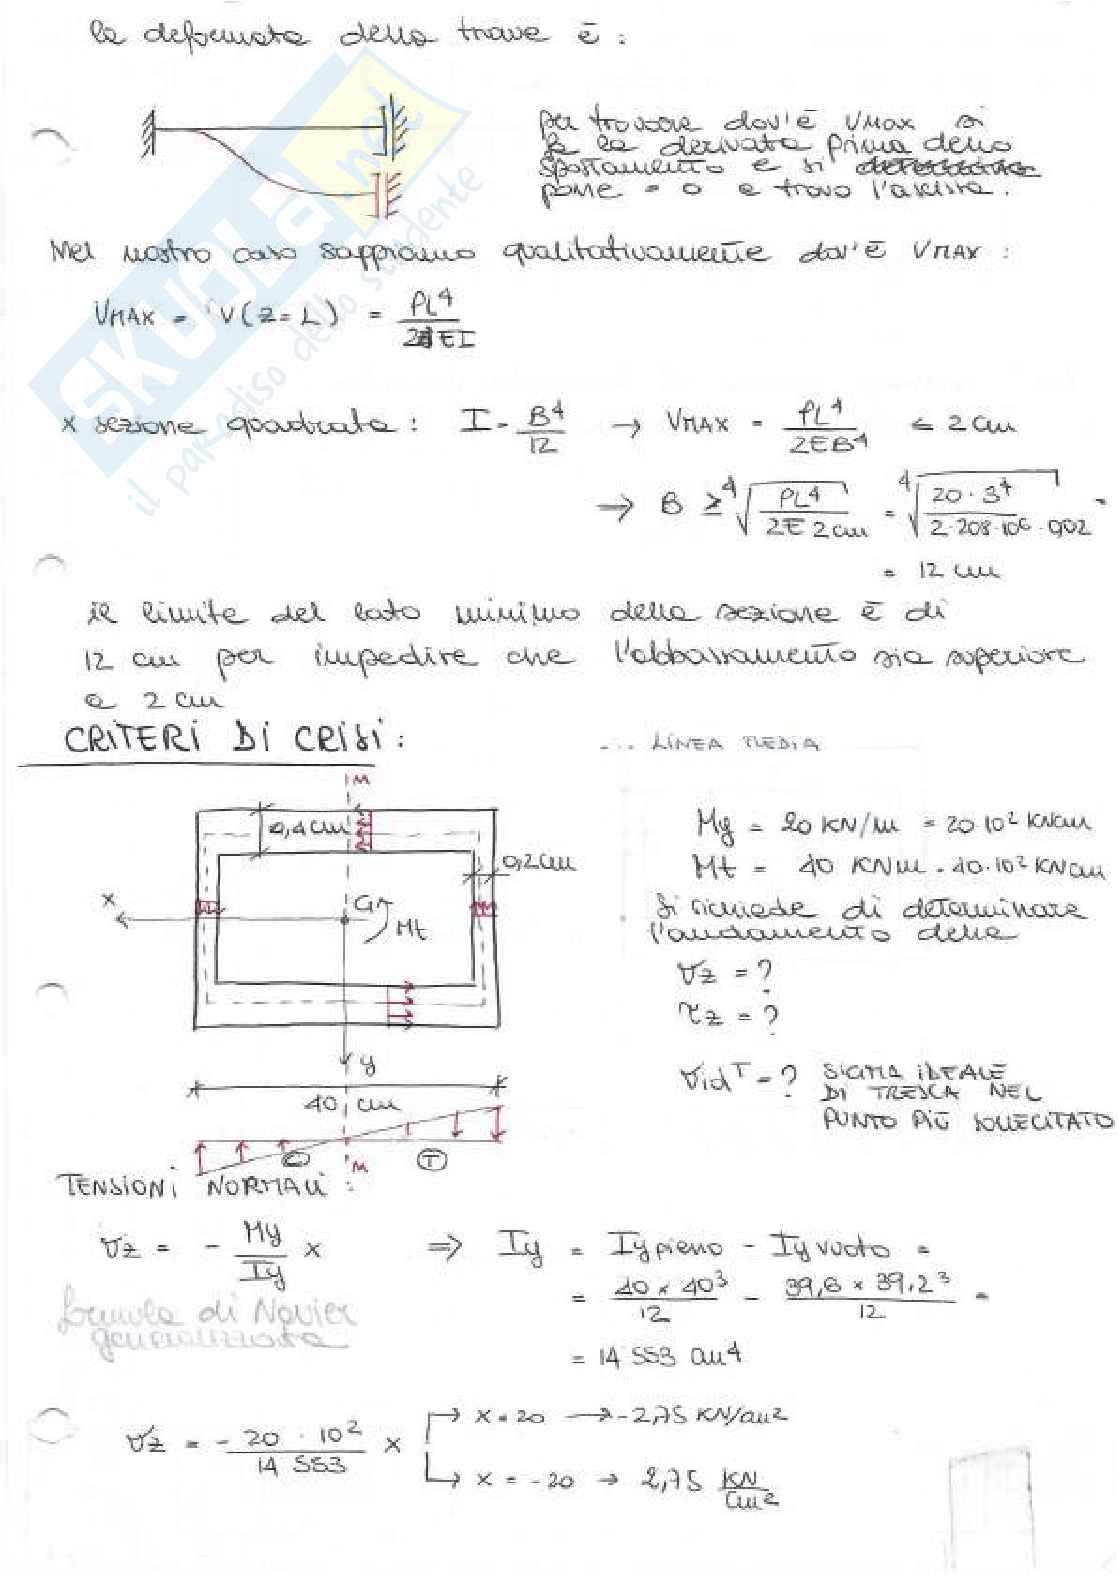 la deformata della trave è :
per trovare dov'è VMAX si
fa la derivata prima dello
spostamento e si
pone = 0 e trovo l'ascissa.
SKUOLA.net
il paradiso dello studente
Nel nostro caso sappiamo qualitativamente dov'è VMAX :
VMAX = V(z=L) = PL⁴ / 24EI
x sezione quadrata : I = B⁴/12 → VMAX = PL⁴ / 2EB⁴ ≤ 2 cm
⇒ B ≥ ⁴√(PL⁴ / 2E 2cm) = ⁴√(20 · 3⁴ / 2·208·10⁶·0,02) =
= 12 cm
il limite del lato minimo della sezione è di
12 cm per impedire che l'abbassamento sia superiore
a 2 cm
CRITERI DI CRISI :
--- LINEA MEDIA
M
0,4 cm
0,2 cm
My = 20 KN/m = 20·10² KNcm
Mt = 40 KNm = 40·10² KNcm
x
G
Mt
Si richiede di determinare
l'andamento delle
σz = ?
τz = ?
y
σidT = ? SIGMA IDEALE
DI TRESCA NEL
PUNTO PIÙ SOLLECITATO
40 cm
C
M
T
TENSIONI NORMALI :
σz = - My/Iy x ⇒ Iy = Iy pieno - Iy vuoto =
= 40 x 40³ / 12 - 39,6 x 39,2³ / 12 =
formula di Navier
generalizzata
= 14 553 cm⁴
σz = - 20 · 10² / 14 553 x
→ x = 20 → -2,75 KN/cm²
→ x = -20 → 2,75 KN/cm²